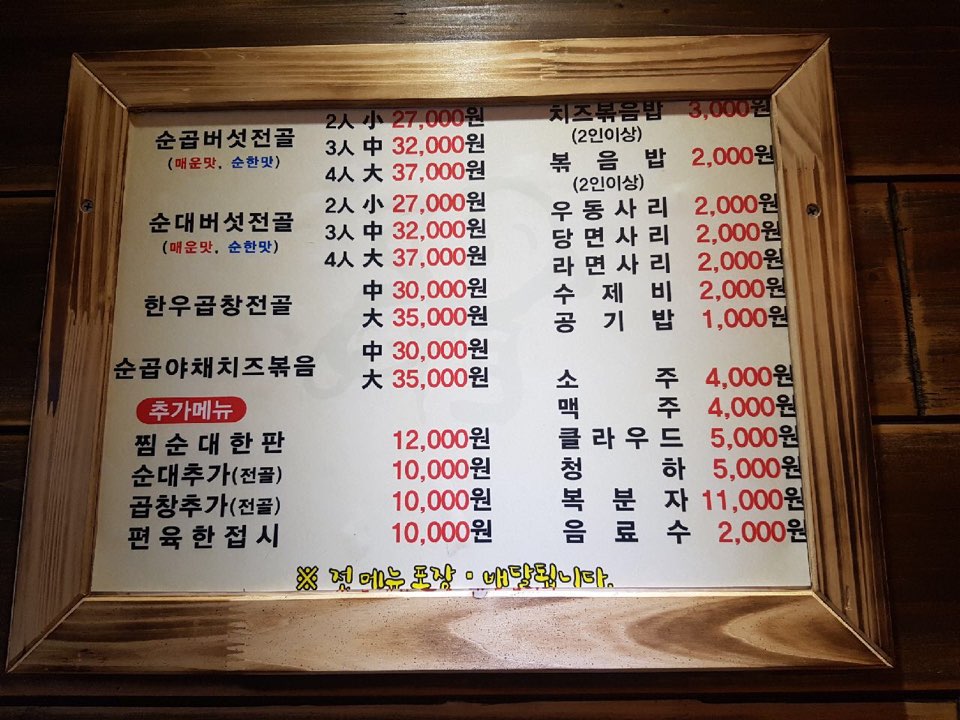 순곱버섯전골
(매운맛, 순한맛)
2人 小 27,000원
3人 中 32,000원
4人 大 37,000원
순대버섯전골
(매운맛, 순한맛)
2人 小 27,000원
3人 中 32,000원
4人 大 37,000원
한우곱창전골
中 30,000원
大 35,000원
순곱야채치즈볶음
中 30,000원
大 35,000원
추가메뉴
찜순대한판 12,000원
순대추가(전골) 10,000원
곱창추가(전골) 10,000원
편육한접시 10,000원
치즈볶음밥 3,000원
(2인이상)
볶음밥 2,000원
(2인이상)
우동사리 2,000원
당면사리 2,000원
라면사리 2,000원
수제비 2,000원
공기밥 1,000원
소주 4,000원
맥주 4,000원
클라우드 5,000원
청하 5,000원
복분자 11,000원
음료수 2,000원
※ 전 메뉴 포장·배달됩니다.